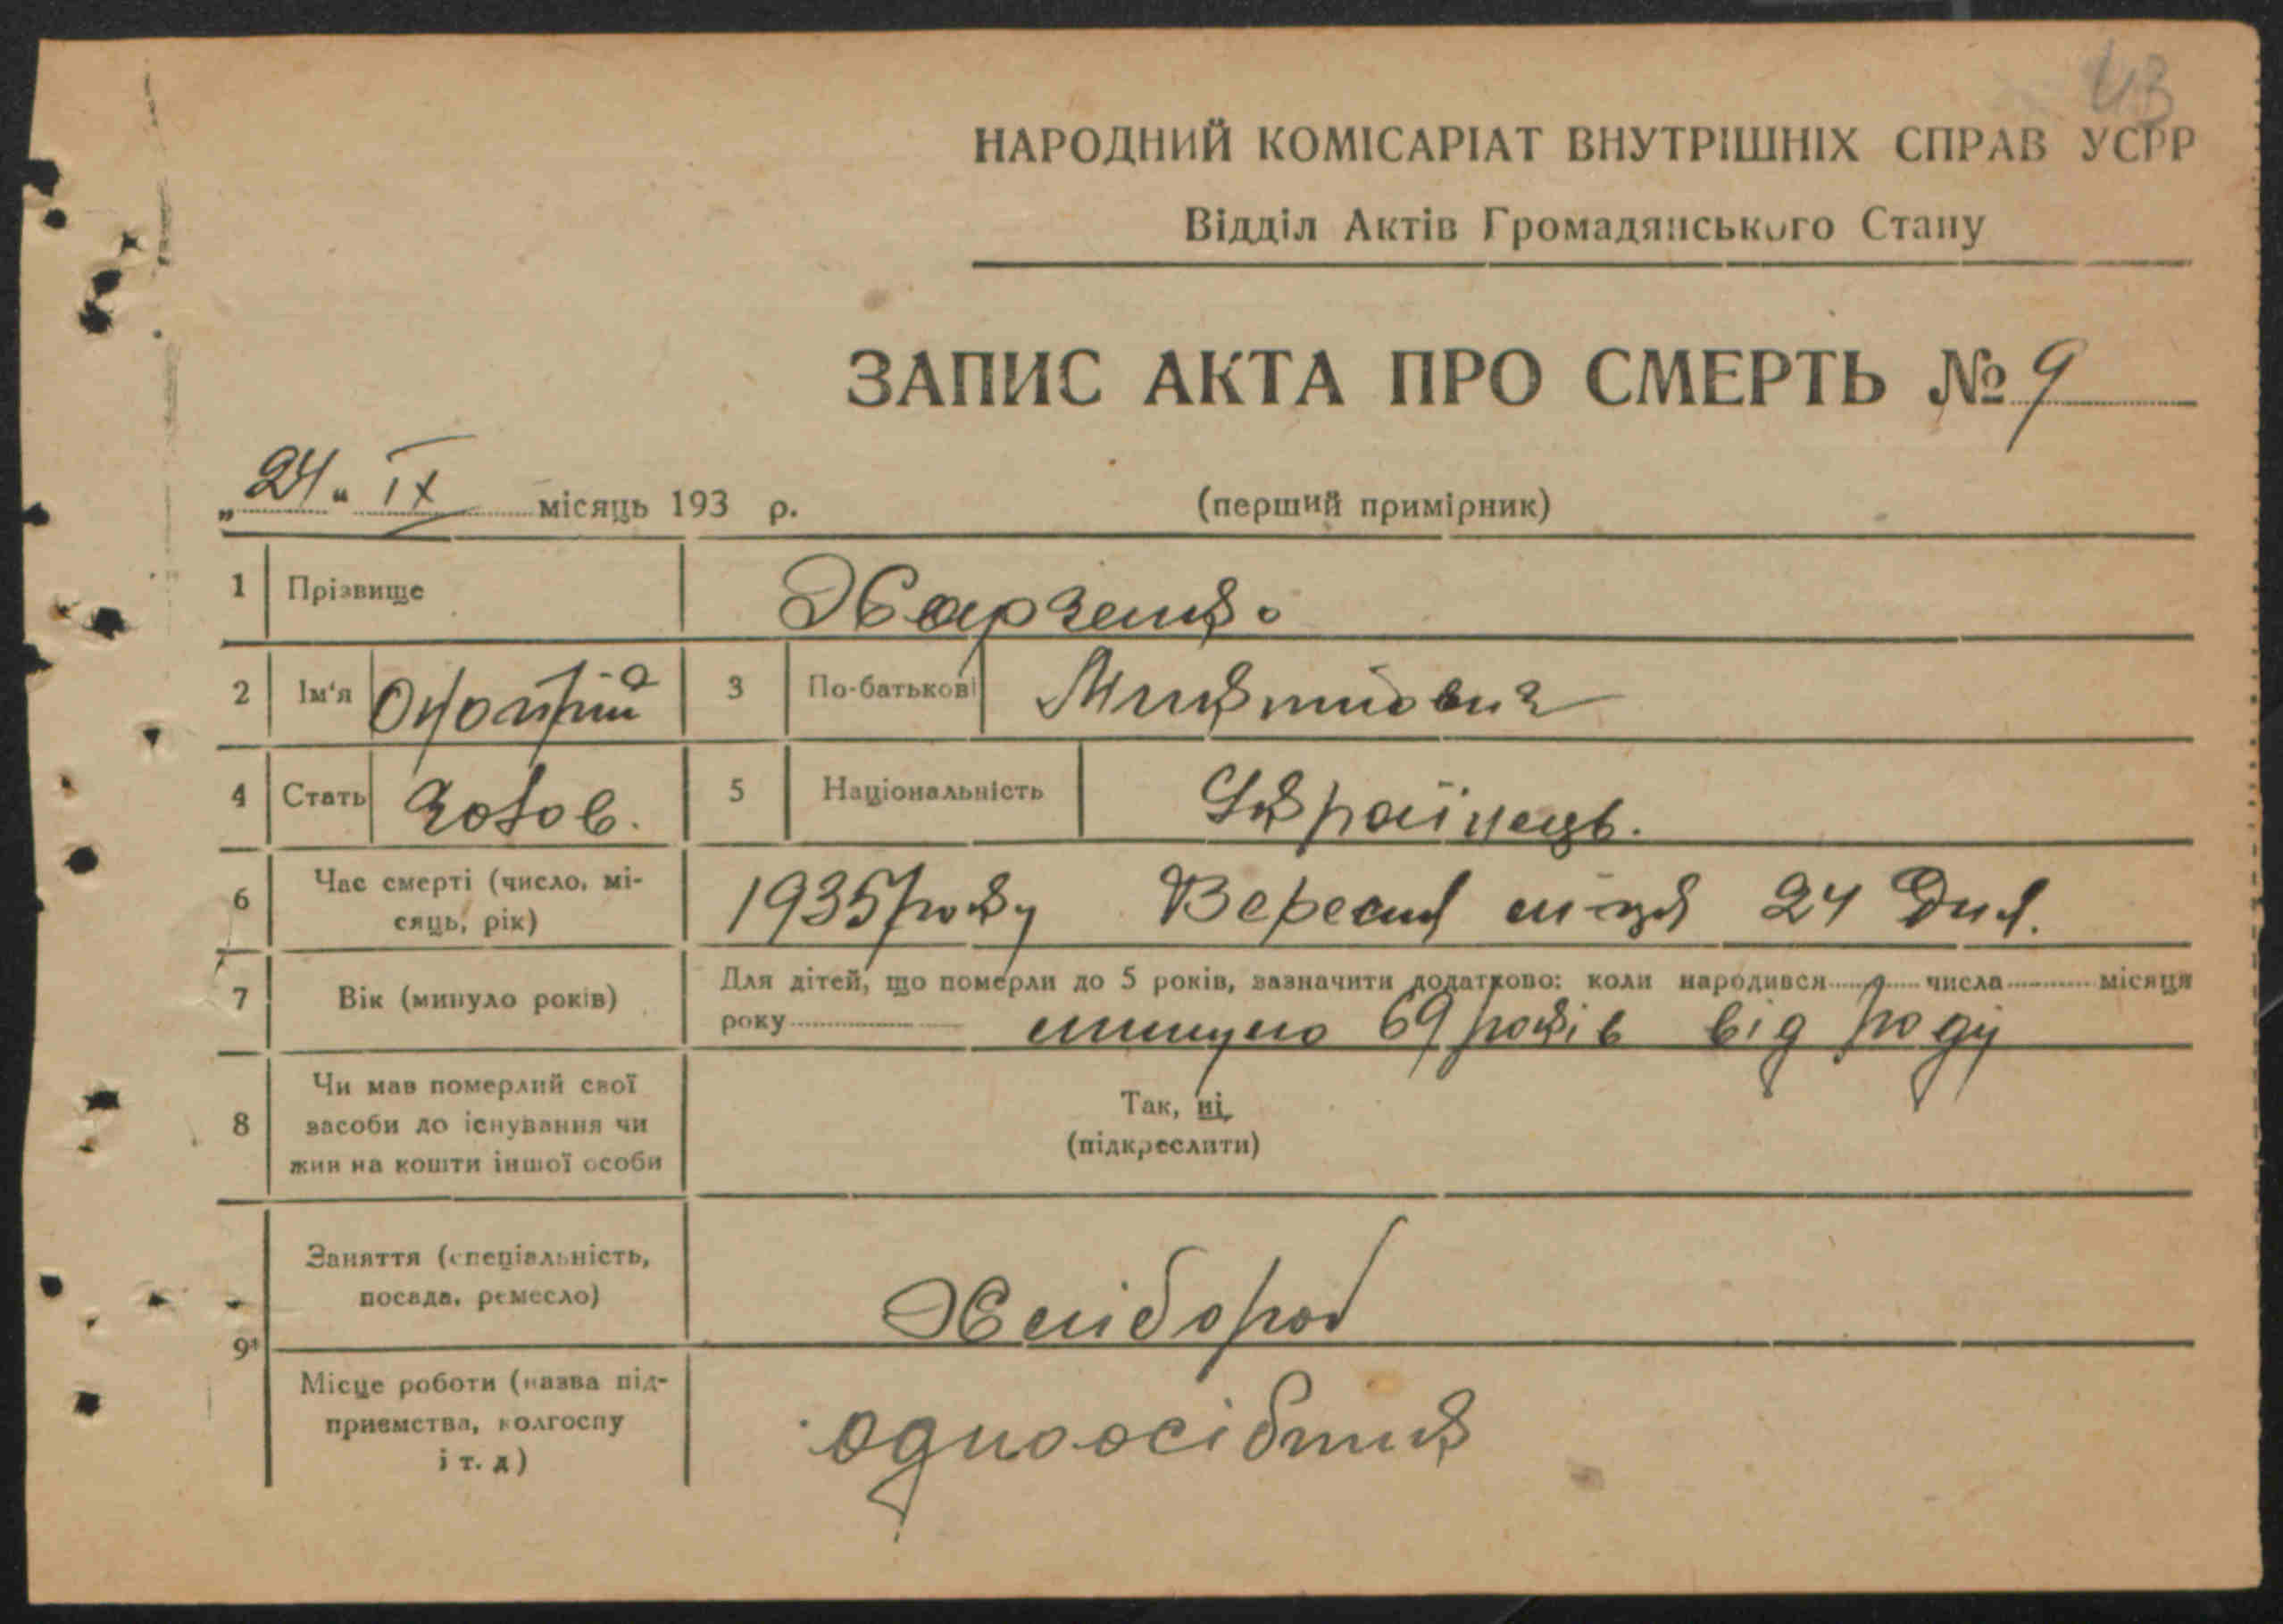 43
НАРОДНИЙ КОМІСАРІАТ ВНУТРІШНІХ СПРАВ УСРР
Відділ Актів Громадянського Стану
ЗАПИС АКТА ПРО СМЕРТЬ № 9
„24" IX місяць 193 р. (перший примірник)
1 Прізвище Харченко
2 Ім'я 3 По-батькові
4 Стать Чолов. 5 Національність Українець.
6 Час смерті (число, мі-
сяць, рік) 1935 року Вересня м-ця 24 Дня.
7 Вік (минуло років) Для дітей, що померли до 5 років, зазначити додатково: коли народився числа місяця
року минуло 69 років від роду
8 Чи мав померлий свої
засоби до існування чи
жив на кошти іншої особи
Так, ні
(підкреслити)
9 Заняття (спеціальність,
посада, ремесло) Хлібороб
Місце роботи (назва під-
приємства, колгоспу
і т. д) одноосібник